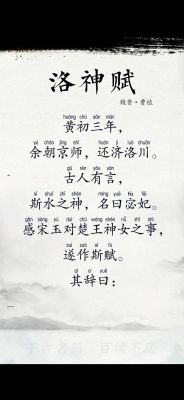 洛神赋
魏晋·曹植
huáng chū sān nián
黄初三年，
yú cháo jīng shī huán jì luò chuān
余朝京师，还济洛川。
gǔ rén yǒu yán
古人有言，
sī shuǐ zhī shén míng yuē fú fēi
斯水之神，名曰宓妃。
gǎn sòng yù duì chǔ wáng shén nǚ zhī shì
感宋玉对楚王神女之事，
suì zuò sī fù
遂作斯赋。
qí cí yuē
其辞曰：
千古名篇 百读不厌